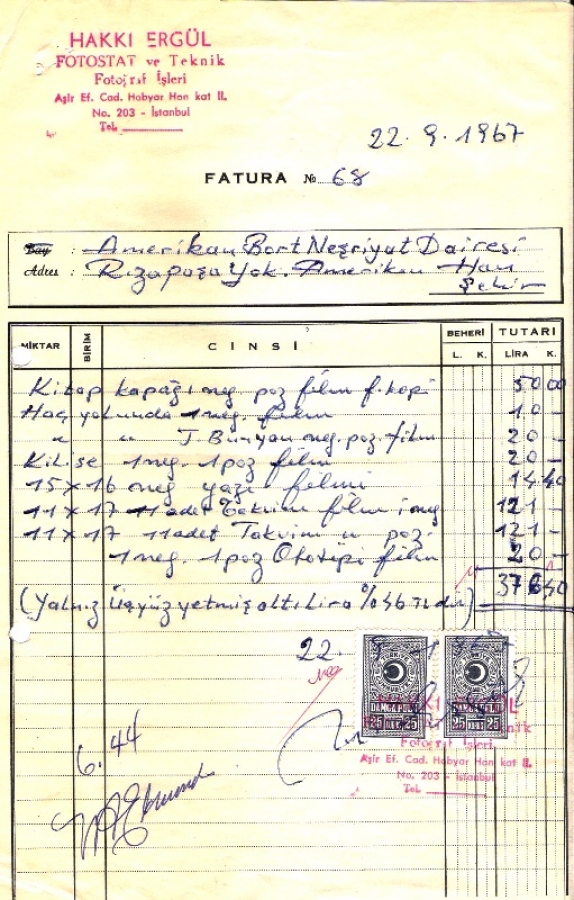 HAKKI ERGÜL
FOTOSTAT ve Teknik
Fotoğraf İşleri
Aşir Ef. Cad. Hobyar Han kat II.
No. 203 - İstanbul
Tel.
22.9.1967
FATURA № 68
Bay : Amerikan Bort Neşriyat Dairesi
Adres : Rızapaşa Yok. Amerikan Han
Şehir
MİKTAR BİRİM CİNSİ BEHERİ TUTARI
L. K. LİRA K.
Kitap kapağı neg poz film f. kopi 50 00
Haç yolunda 1 neg. film 10 -
" " J. Bunyan neg. poz film 20 -
Kilise 1 neg. 1 poz film 20 -
15 x 16 neg yazı filmi 14 40
11 x 17 11 adet Takvim film neg 121 -
11 x 17 11 adet Takvim " poz 121 -
1 neg. 1 poz Ofotipi film 20 -
376 40
(Yalnız Üçyüzyetmişaltı Lira dır)
22. 9
DAMGA PULU DAMGA PULU
25 25 25 25
Fotoğraf İşleri
Aşir Ef. Cad. Hobyar Han kat II.
No. 203 - İstanbul
Tel.
6.44